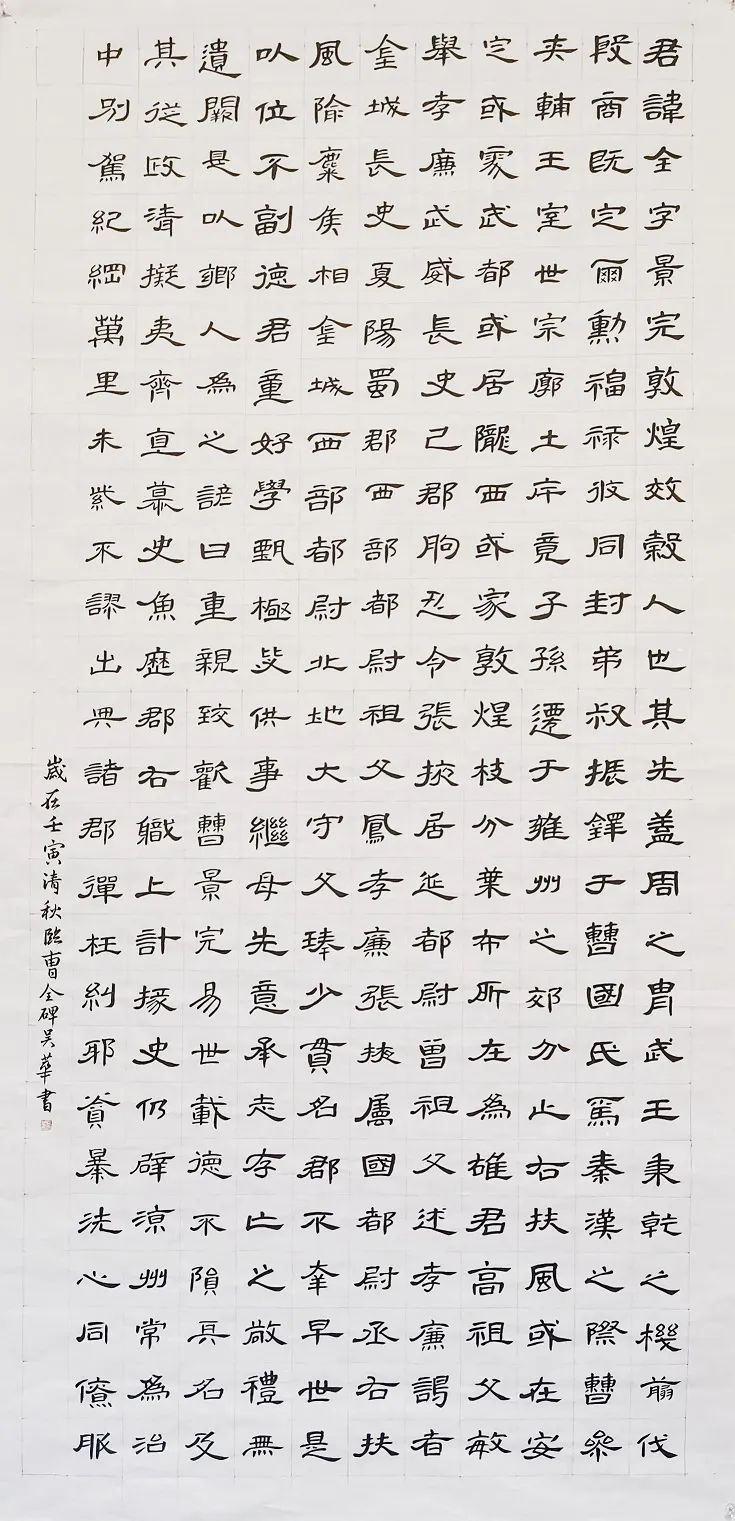 君諱全字景完敦煌效穀人也其先蓋周之胄武王秉乾之機翦伐
殷商既定爾勳福祿攸同封弟叔振鐸于曹國氏焉秦漢之際曹參
夾輔王室世宗廓土斥竟子孫遷于雍州之郊分止右扶風或在安
定或處武都或居隴西或家敦煌枝分葉布所在為雄君高祖父敏
舉孝廉武威長史巴郡朐忍令張掖居延都尉曾祖父述孝廉謁者
金城長史夏陽蜀郡西部都尉祖父鳳孝廉張掖屬國都尉丞右扶
風隃麋侯相金城西部都尉北地大守父琫少貫名郡不幸早世是
以位不副德君童好學甄極毖供事繼母先意承志存亡之敬禮無
遺闕是以鄉人為之諺曰重親致歡曹景完易世載德不隕其名及
其從政清擬夷齊直慕史魚歷郡右職上計掾史仍辟涼州常為治
中別駕紀綱萬里朱紫不謬出典諸郡彈枉糾邪貪暴洗心同僚服
歲在壬寅清秋臨曹全碑吳華書